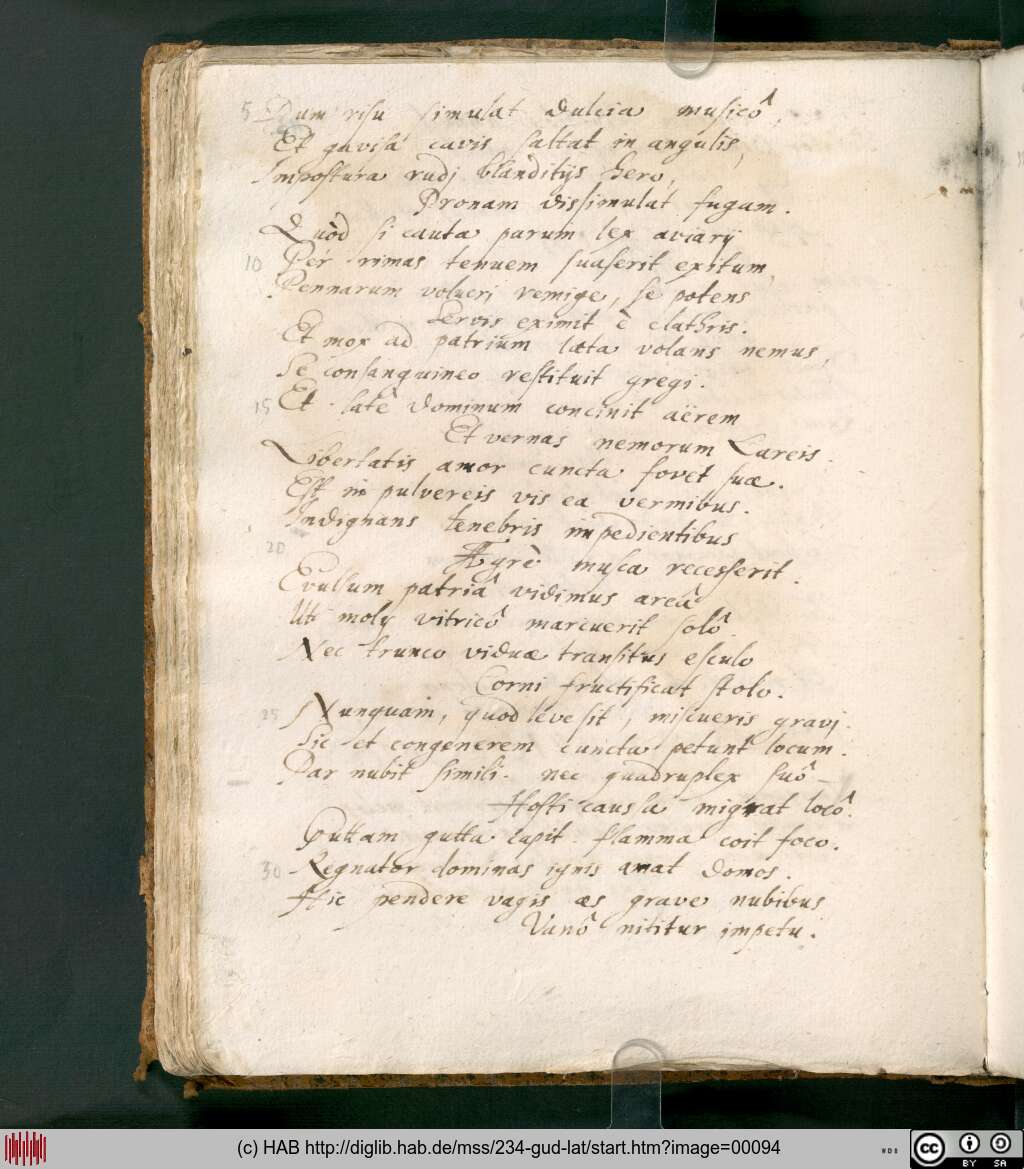 5 Dum risu simulat dulcia musicô,
Et gavisâ cavis saltat in angulis,
Impostura rudj blanditijs hero,
Pronam dissimulat fugam.
Quòd si cauta parum lex aviarij
10 Per rimas tenuem suaserit exitum,
Pennarum volucri remige, se potens
Servis eximit è clathris.
Et mox ad patrium læta volans nemus,
Se consanguineo restituit gregi.
15 Et latè dominum concinit aërem
Et vernas nemorum Lareis.
Libertatis amor cuncta fovet suæ.
Est in pulvereis vis ea vermibus.
Indignans tenebris impedientibus
20 Ægrè musca recesserit.
Evulsum patriâ vidimus areâ
Uti moly vitricô marcuerit solô
Nec trunco viduæ transitus esculo
Corni fructificat stolo.
25 Nunquam, quod leve sit, miscueris gravj.
Sic et congenerem cuncta petunt locum.
Par nubit simili. nec quadruplex suô
Hosti causâ migrat locô.
Guttam gutta capit. flamma coit foco.
30 Regnator dominas ignis amat domos.
Hic pendere vagis æs grave nubibus
Vanô nititur impetu.
(c) HAB http://diglib.hab.de/mss/234-gud-lat/start.htm?image=00094
WDB
cc BY SA